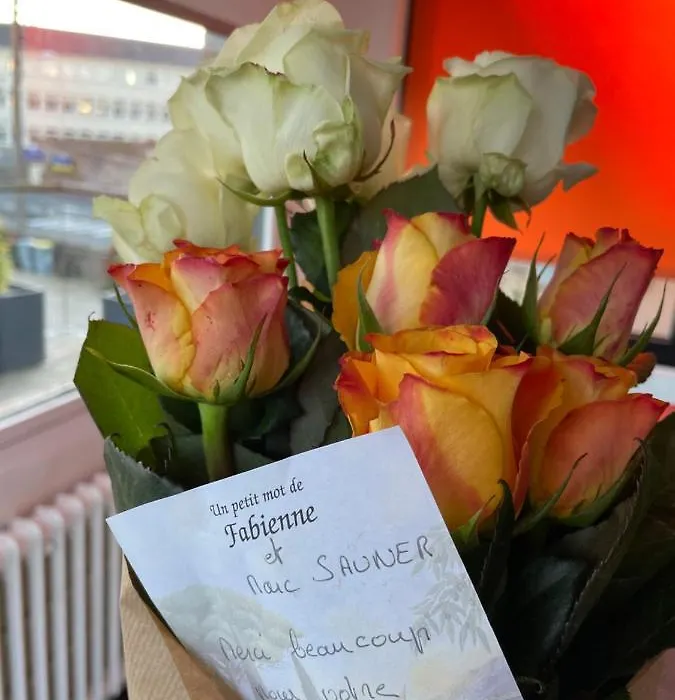 Un petit mot de
Fabienne
et
Marc SAUNER
Merci beaucoup
pour votre